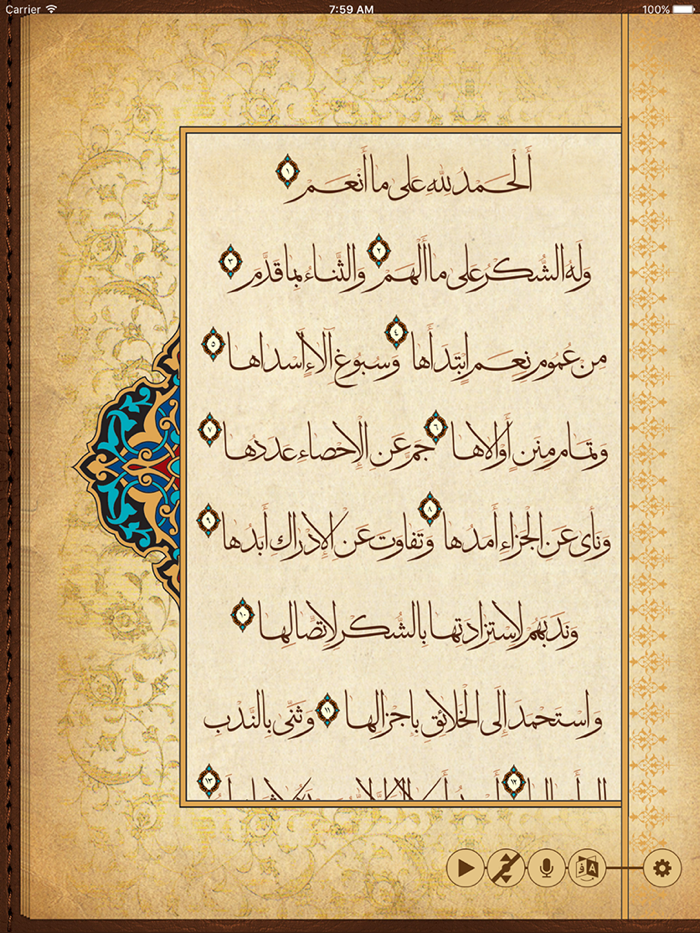 Carrier 7:59 AM 100%
أَلْحَمْدُ لِلّٰهِ عَلى ما أَنْعَمَ ١
وَلَهُ الشُّكْرُ عَلى ما أَلْهَمَ ٢ وَالثَّناءُ بِما قَدَّمَ ٣
مِن عُمُومِ نِعَمٍ ابْتَدَأَها ٤ وَسُبُوغِ آلاءٍ أَسْداها ٥
وَتَمامِ مِنَنٍ أَوْلاها ٦ جَمَّ عَنِ الْإِحْصاءِ عَدَدُها ٧
وَنَأى عَنِ الْجَزاءِ أَمَدُها ٨ وَتَفاوَتَ عَنِ الْإِدْراكِ أَبَدُها ٩
وَنَدَبَهُمْ لِاسْتِزادَتِها بِالشُّكْرِ لِاتِّصالِها ١٠
وَاسْتَحْمَدَ إِلَى الْخَلائِقِ بِإِجْزالِها ١١ وَثَنّى بِالنَّدْبِ
١٢ ١٣
ف A